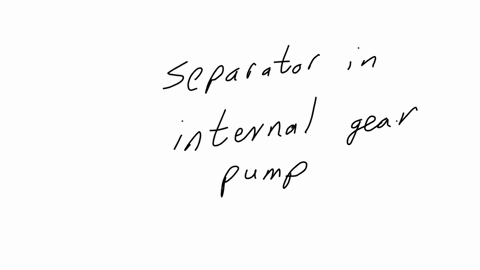 separator in
internal gear
pump